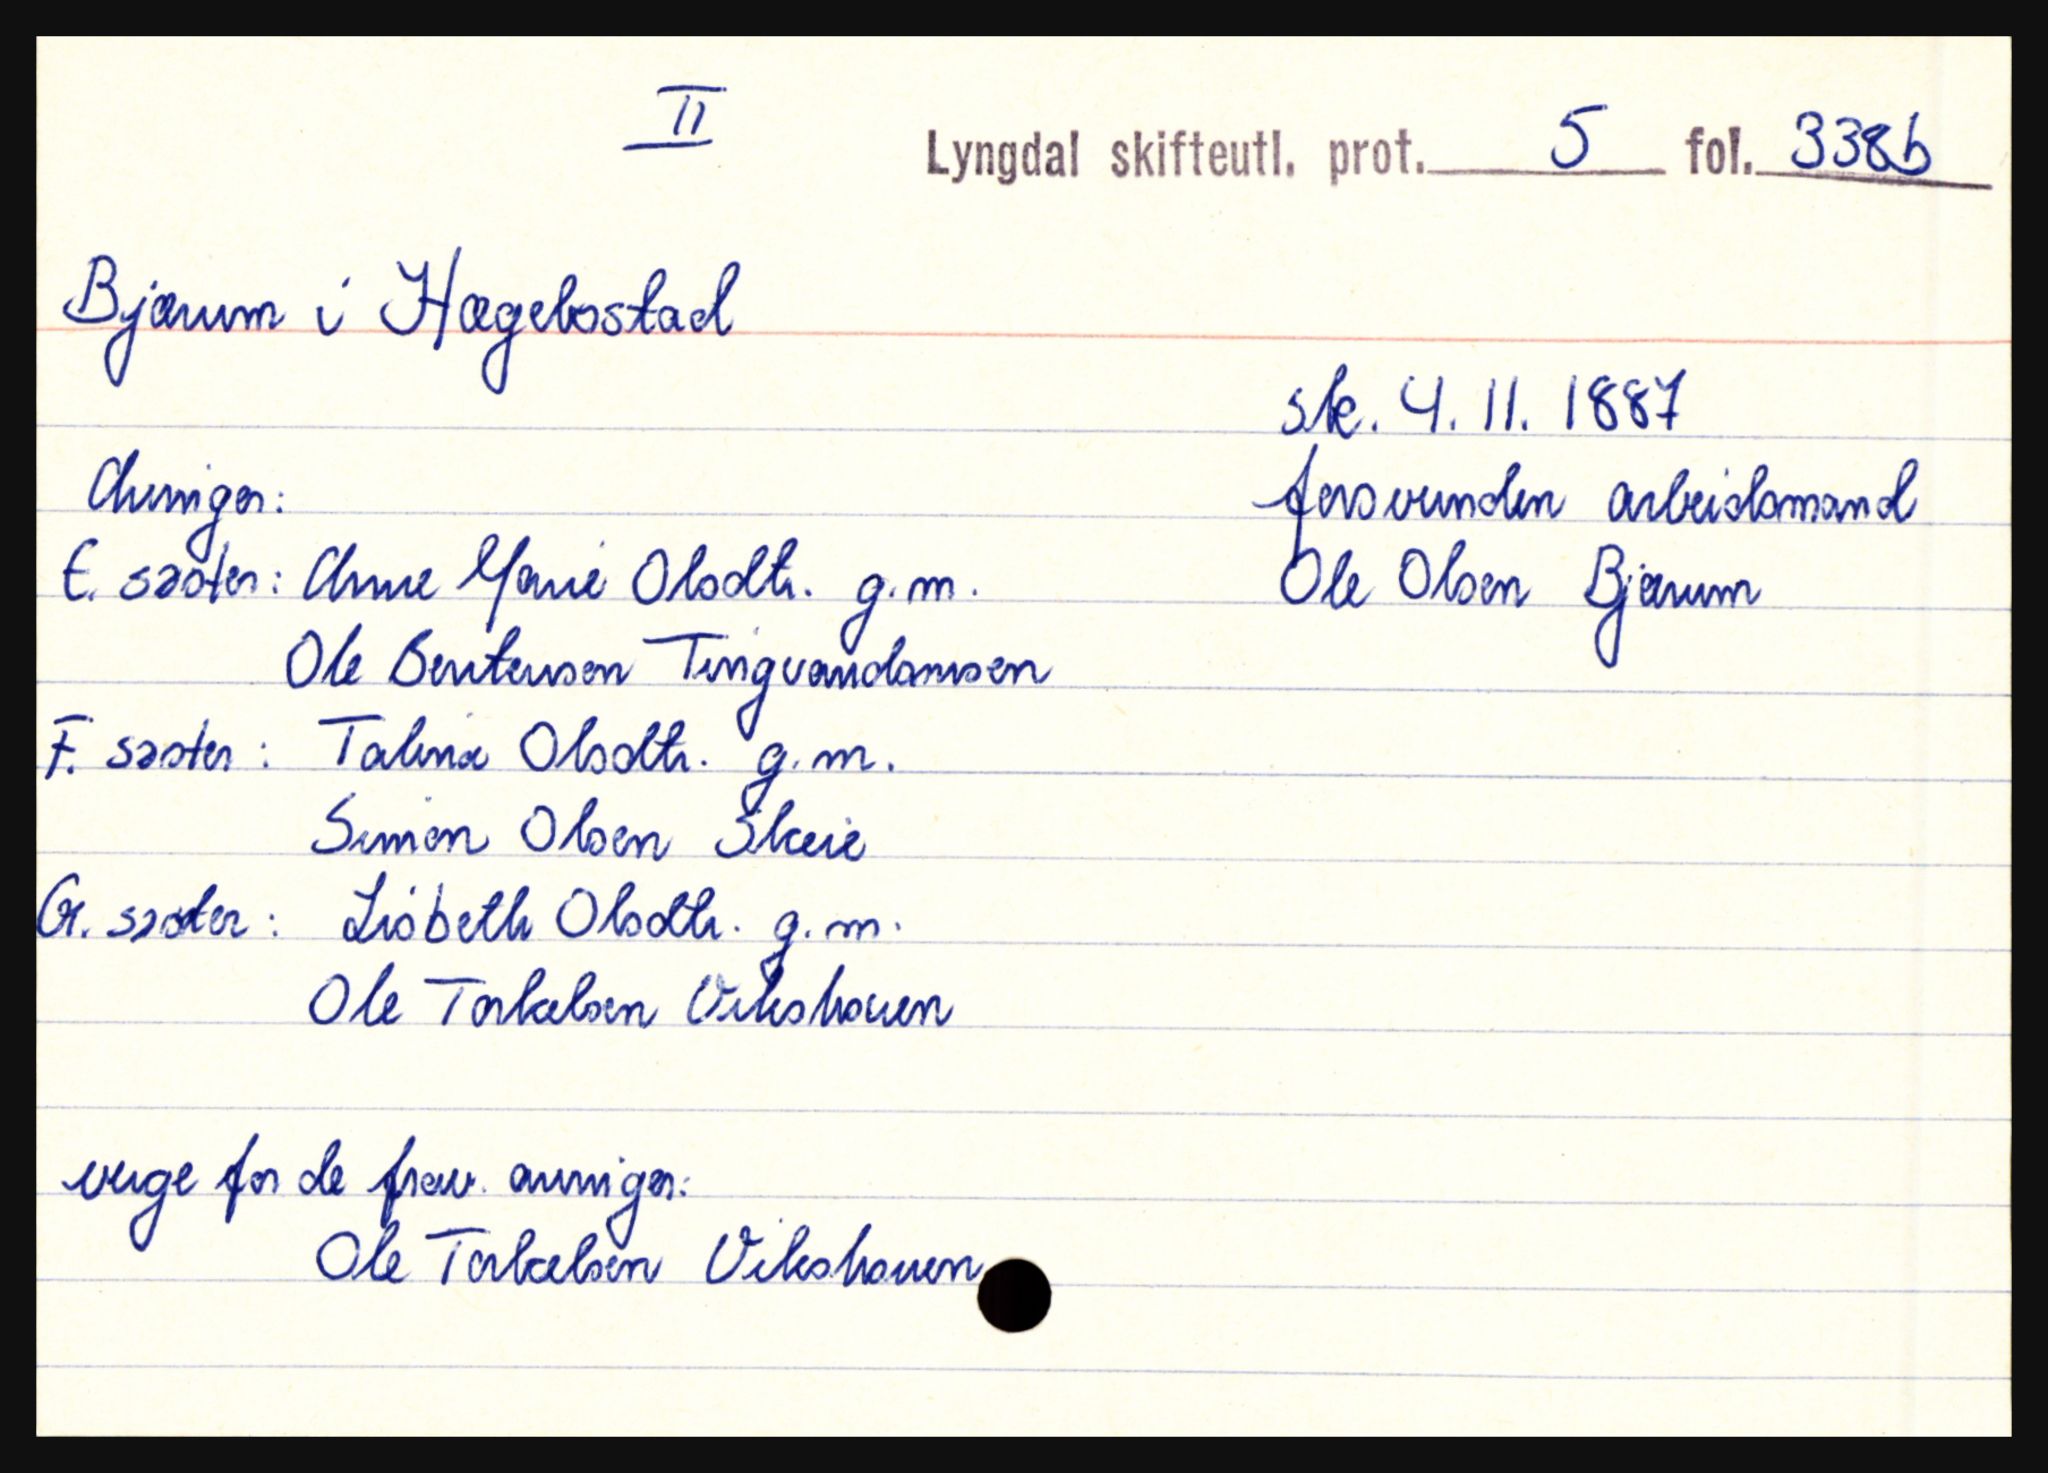 II
Lyngdal skifteutl. prot. 5 fol. 338b
Bjærum i Hægebostad
sk. 4. 11. 1887
forsvunden arbeidsmand
Ole Olsen Bjærum
Arvinger:
E. søster: Anne Marie Olsdtr. g.m.
Ole Berntensen Tingvandsmoen
F. søster: Talina Olsdtr. g.m.
Simon Olsen Skeie
G. søster: Lisbeth Olsdtr. g.m.
Ole Torkelsen Vikshouen
verge for de frav. arvinger:
Ole Torkelsen Vikshouen